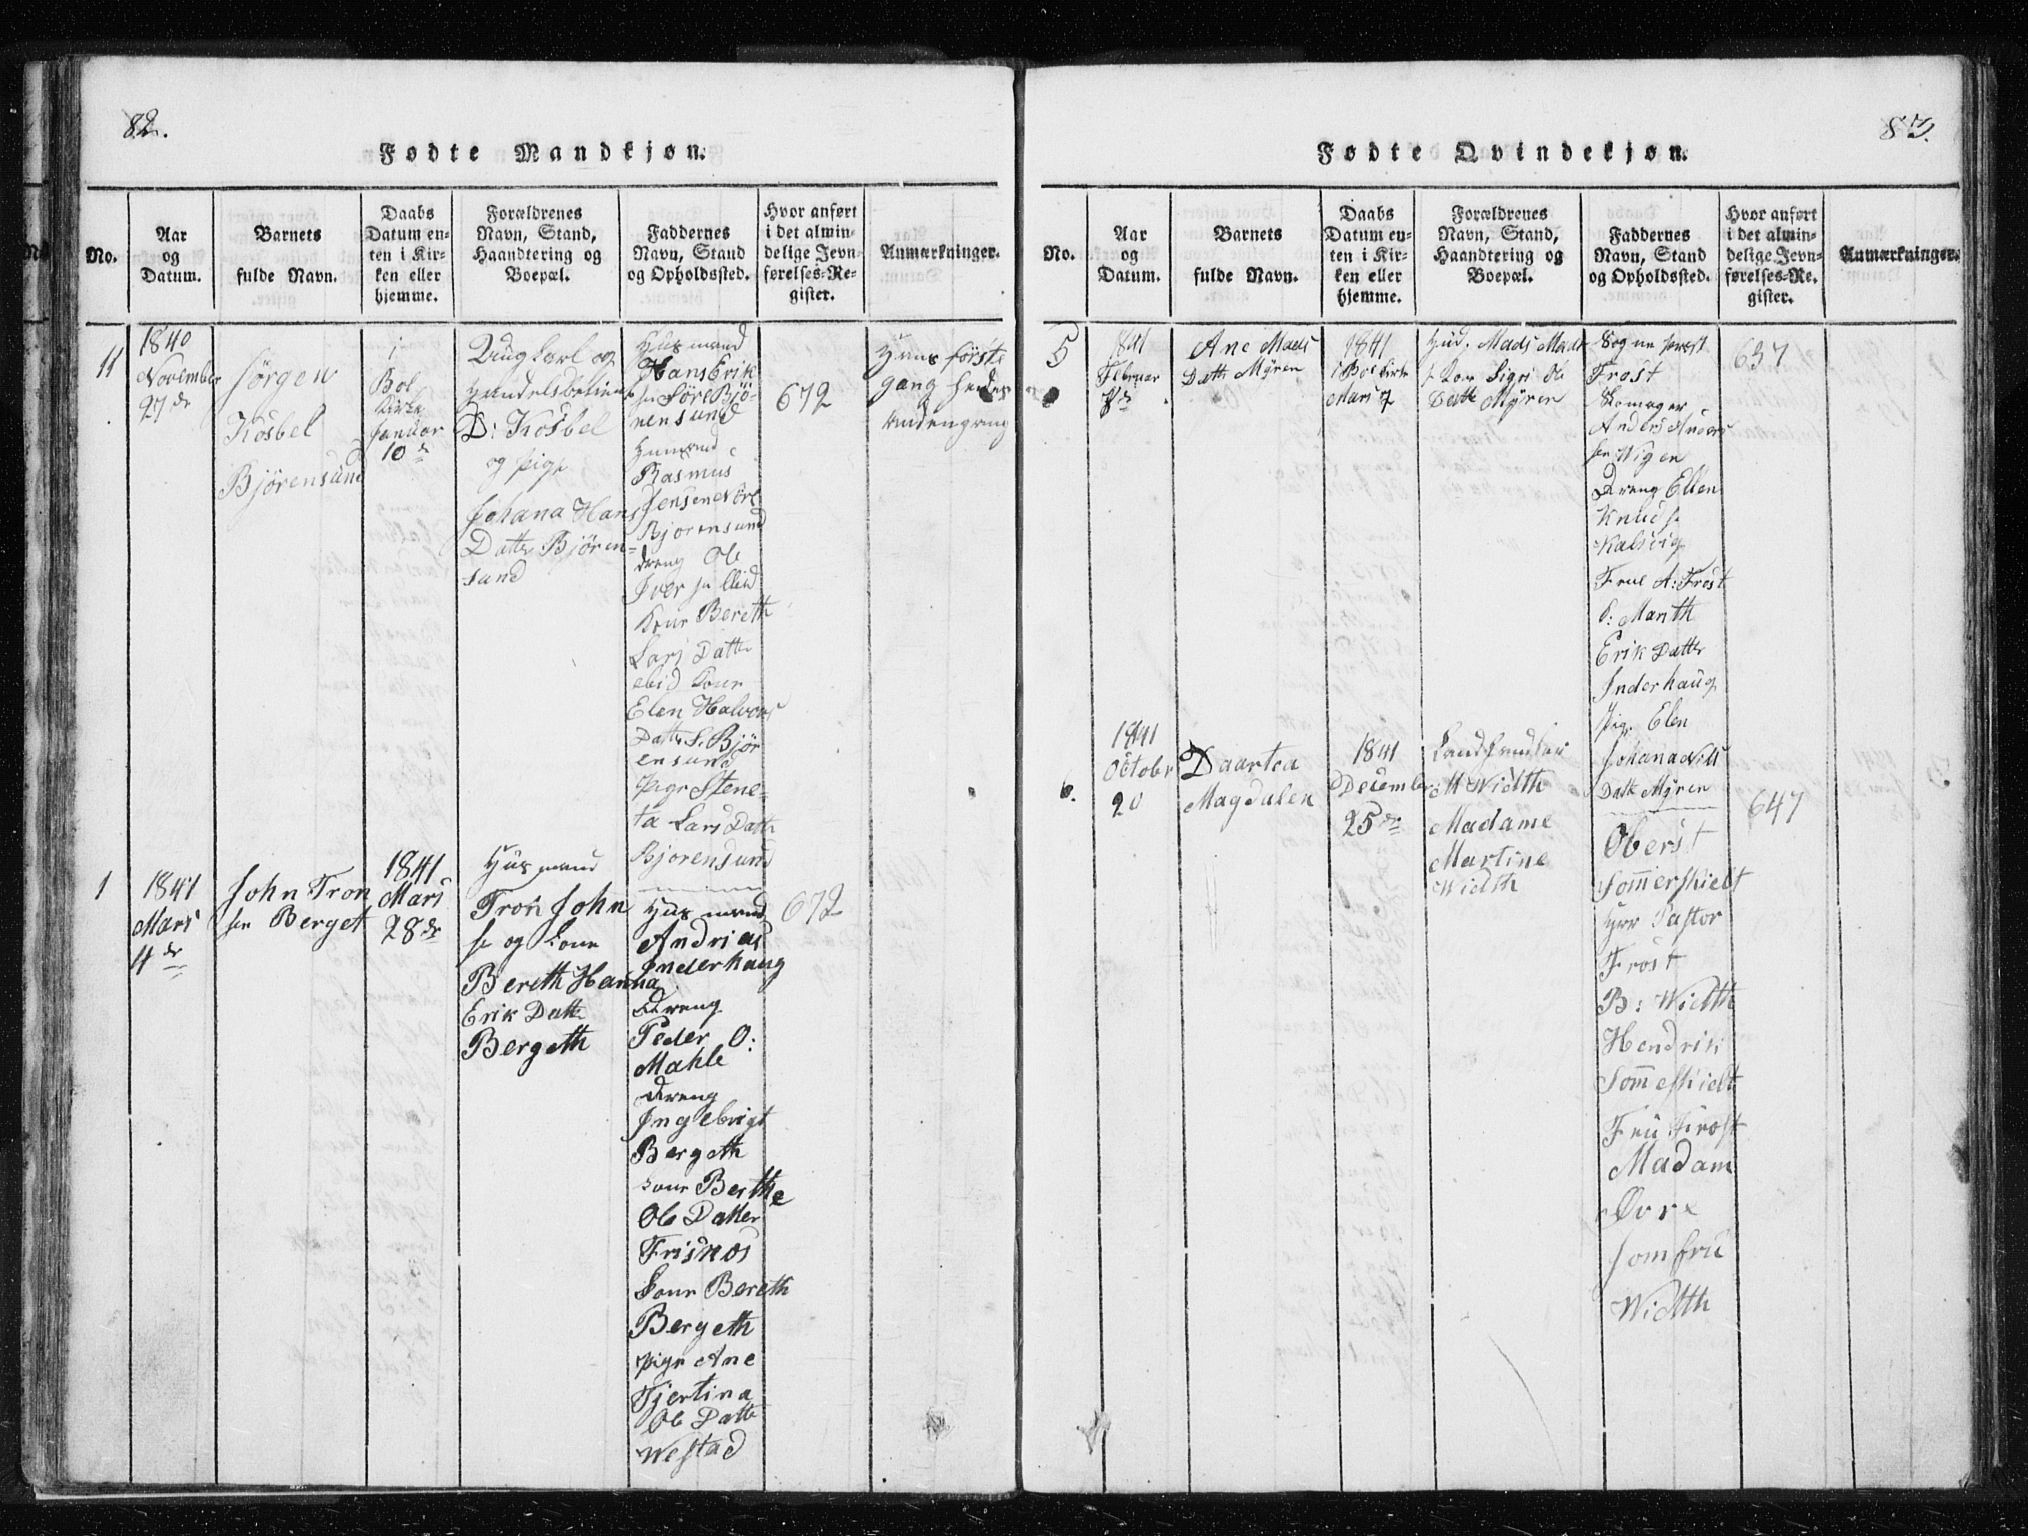 82.
Fødte Mandkjøn.
No.
Aar
og
Datum.
Barnets
fulde Navn.
Daabs
Datum en-
ten i Kir-
ken eller
hjemme.
Forældrenes
Navn, Stand,
Haandtering og
Boepæl.
Faddernes
Navn, Stand
og Opholdssted.
Hvor anført
i det almin-
delige Jevn-
førelses-Re-
gister.
Anmærkninger.
11
1840
November
27 de
Jørgen
Kosbel
Bjørensund
i
Bol
Kirke
Januar
10 de
Ung Karl og
Handelsbetient
D: Kosbel
og Pige
Johana Hans
Datter Bjøren-
sund
Husmand
Hans Erik
sen Søre Bjø-
rensund
Husmand
Rasmus
Jensen Nørl
Bjorensund
dreng Ole
Iver sen ibid
Kone Bereth
Lars Datter
ibid Kone
Elen Halvors
Datter S. Bjør
ensund
Pige Stene-
ta Lars Datter
Bjorensund
672
Hans første
gang hendes
anden gang
1
1841
Mars
4 de
John Tron
sen Berget
1841
Mars
28 de
Husmand
Tron John
sen og Kone
Bereth Hanna
Erik Datter
Bergeth
Husmand
Andrias
Inderhaug
dreng
Peder O:
Mahle
dreng
Ingebrigt
Bergeth
Kone Berthe
Ole Datter
Frisnes
Kone Bereth
Bergeth
Pige Ane
Tjertina
Ole Datter
Westad
672
83.
Fødte Qvindekjøn.
No.
Aar
og
Datum.
Barnets
fulde Navn.
Daabs
Datum en-
ten i Kir-
ken eller
hjemme.
Forældrenes
Navn, Stand,
Haandtering og
Boepæl.
Faddernes
Navn, Stand
og Opholdssted.
Hvor anført
i det almin-
delige Jevn-
førelses-Re-
gister.
Anmærkninger.
5
1841
Februar
Ane Mads
Datter Myren
1841
i Bol Kirke
Mars 7
Mads Mads
sen Kone Sigri Ole
Datter Myren
Sognepræst
Frost
Anders Anders
sen Wigen
Dreng Ellen
Knud sen
Kalsvig
Frue A: Frost
K: Marith
Erik Datter
Inderhaug
Pige Elen
Johana Nils
Datter Myren
637
6.
1841
October
20
Daartea
Magdalen
1841
December
25 de
Landhandler
M Width
Madame
Martine
Width
Oberst
Sommerskielt
Herr Pastor
Frost
B: Width
Hendrik
Sommeskielt
Fru Frost
Madam
Øvre
Jomfru
Width
647